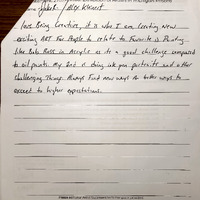 love Being Creative, it is who I am Creating New
exciting ART For People to relate to Favorite is Painting
like Bob Ross in Acrylic as to a good challenge compared
to oil paints. My Dad is doing ink pen portraits and other
challenging Things. Always Find new ways or better ways to
exceed to higher expectations.